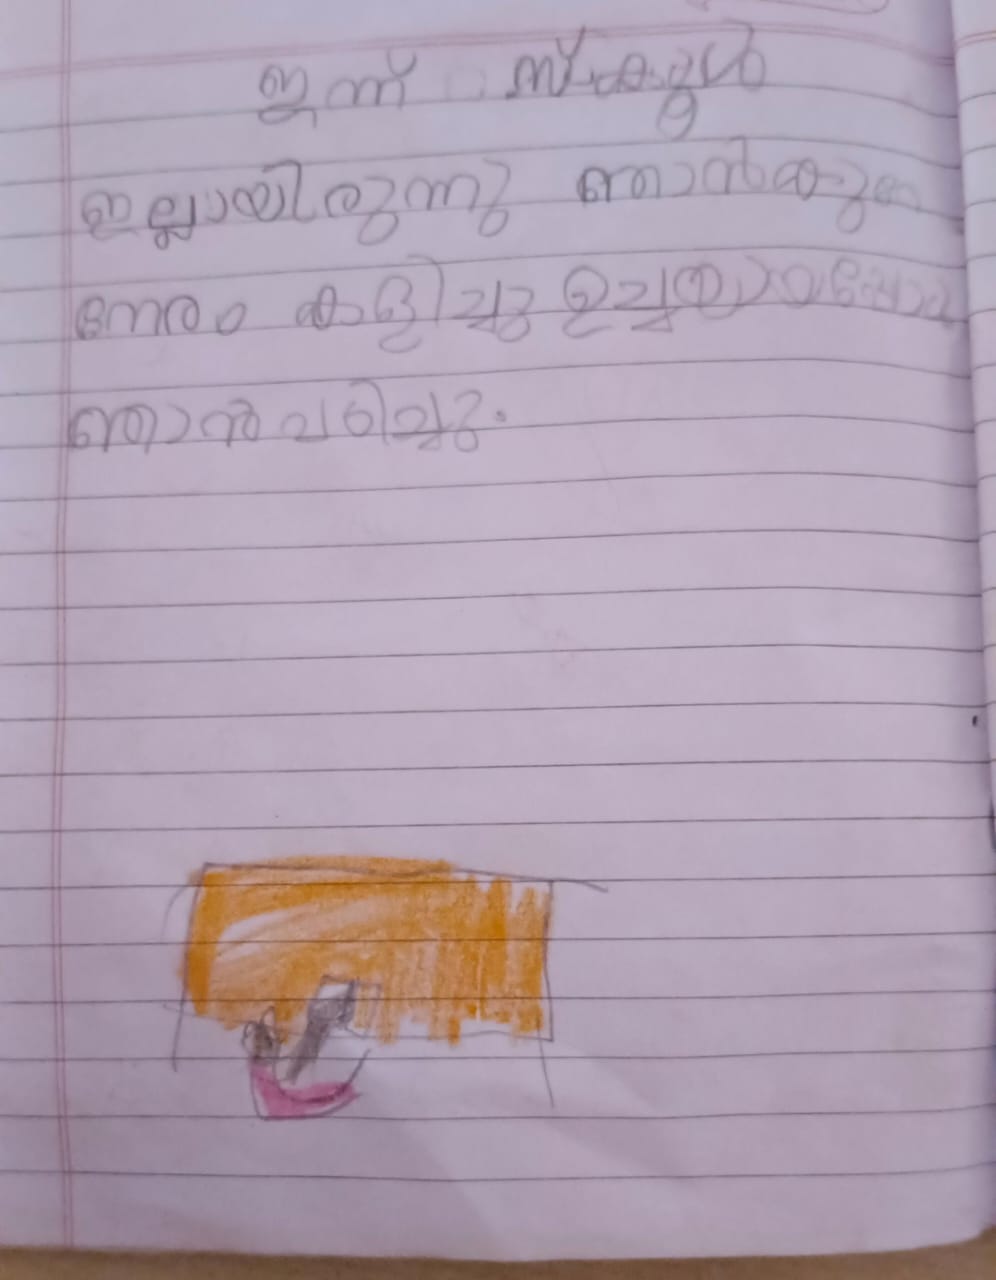 ഇന്ന് സ്കൂൾ
ഇല്ലായിരുന്നു ഞാൻ കുറെ
നേരം കളിച്ചു ഉച്ചയായപ്പോൾ
ഞാൻ പഠിച്ചു.